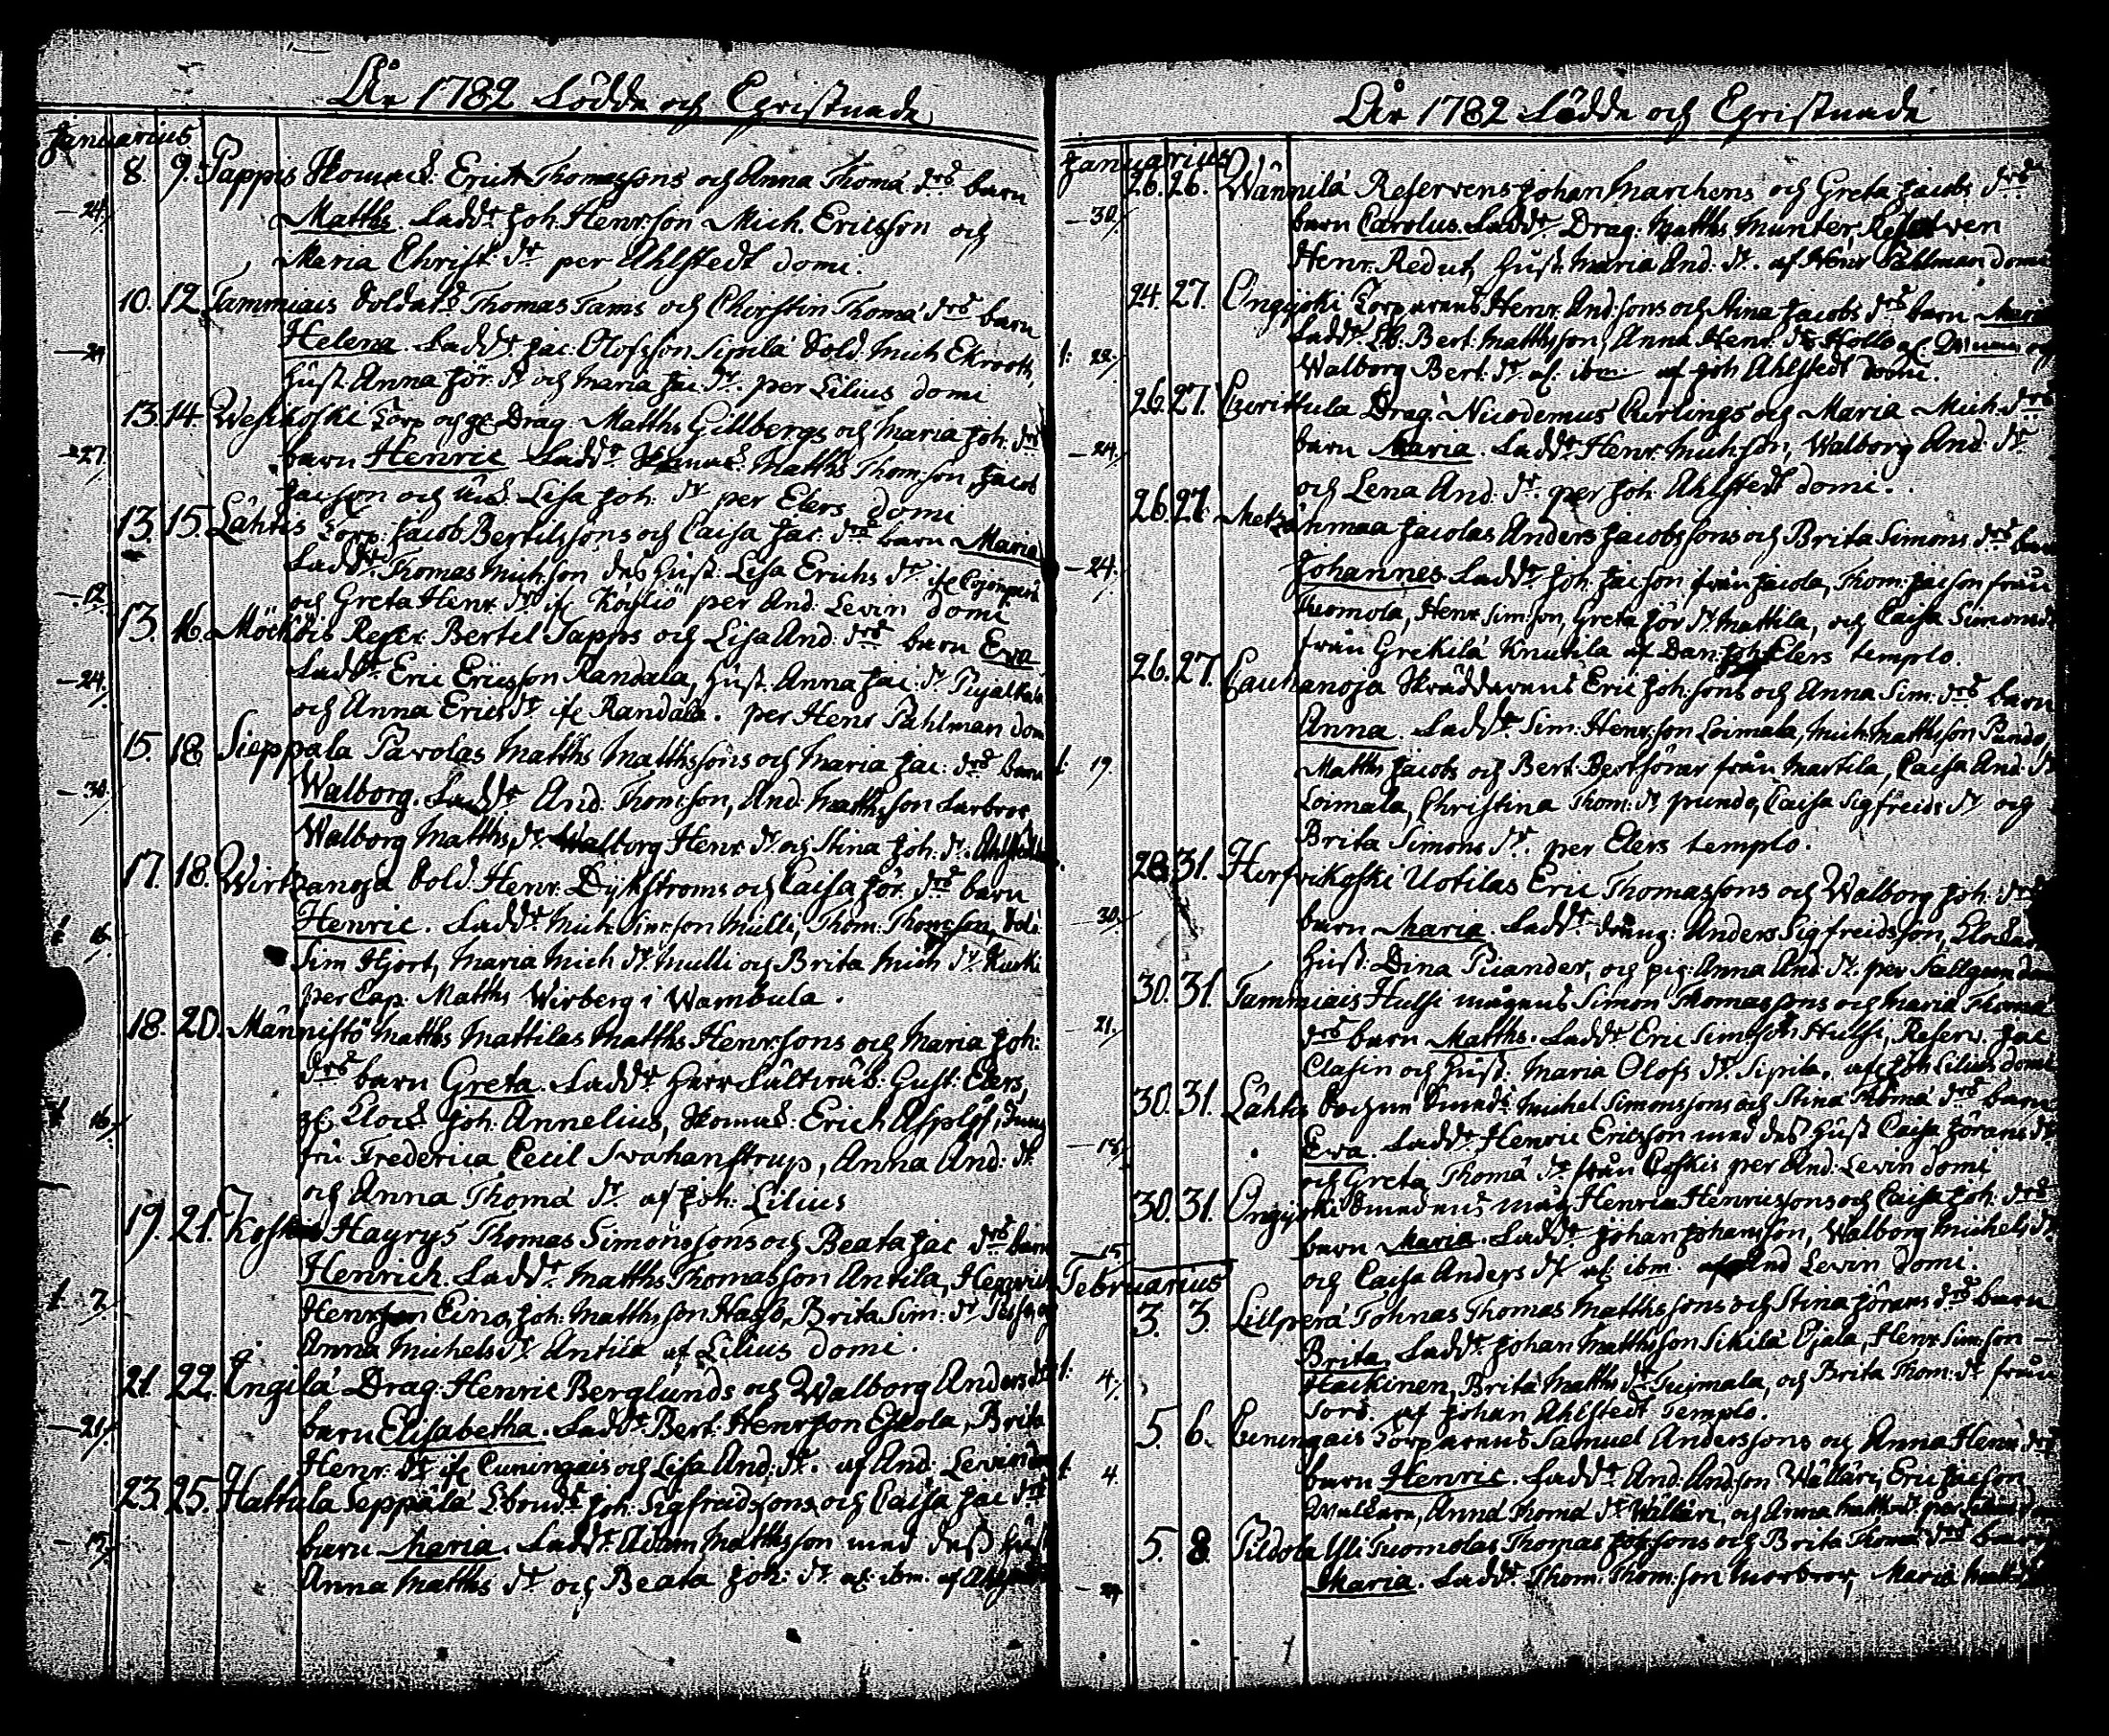 År 1782 Födde och Christnade
Januarius
8. 9. Pappis Skomak. Erich Thomassons och Anna Thomæ drs barn
24. Matths. Fadd. Joh. Henr.son Mich. Ericsson och
Maria Christ. dr per Ahlstedt domi.
10. 12. Tammiais Soldats Thomas Tams och Christin Thomæ drs barn
Helena. Fadd. Jac. Olofsson Sipilä Sold. Mich Ekrooth,
Hust. Anna Jör. dr och Maria Jac. dr. per Lilius domi
13. 14. Drag. Matths Gillbergs och Maria Joh. drs
27. barn Henric Fadd. Matths Thom:son, Jacob
Jacsson och Lisa Joh. dr per Elers domi
13. 15. Lähtis Torp. Jacob Bertilssons och Caisa Jac. drs barn Maria
12. Fadd. Thomas Mich.son dess Hust. Lisa Erichs dr
och Greta Henr. dr Köyliö per And. Levin domi
13. 16. Reser. Bertel Tapps och Lisa And. drs barn Eva
24. Fadd. Eric Ericsson Randala, Hust. Anna Jac. dr
och Anna Erics dr Randala. per Henr Pahlman dom
15. 18. Sieppala Pavolas Matths Matthssons och Maria Jac. drs barn
30. Walborg. Fadd. And. Thom:son, And. Matthsson
Walborg Matths dr. Walborg Henr. dr och Stina Joh. dr.
17. 18. Wirtzanoja Sold. Henr. Dykstroms och Caisa Jör. drs barn
16. Henric. Fadd. Mich. Sim:son Mulli, Thom. Thom:son, Sold.
Sim Hjort, Maria Mich dr. Mulli och Brita Mich dr.
per Cap. Matths Wirberg i Wambula.
18. 20. Männistö Matths Mattilas Matths Henr.sons och Maria Joh:
drs barn Greta. Fadd. Herr Gust. Elers,
16. Joh. Annelius, Skomak. Erich Asplöf,
fru Frederica Cecil Svahanstrup, Anna And. dr.
och Anna Thomæ dr af Joh. Lilius
19. 21. Hayrys Thomas Simonssons och Beata Jac drs barn
7. Henrich. Fadd. Matths Thomasson Antila, Henrich
Henr.son Eino, Joh. Matthsson Brita Sim. dr
Anna Michels dr. Antila af Lilius domi.
21. 22. Ängilä Drag. Henric Berglunds och Walborg Anders drs
21. barn Elisabetha. Fadd. Bert. Henrsson Eskola, Brita
Henr. dr Cuningais och Lisa And. dr. af And. Levin
23. 25. Hattula Seppälä Joh. Sigfreidssons och Caisa Jac drs
17. barn Maria. Fadd. Adam Matthsson med dess Hust
Anna Matths dr och Beata Joh. dr ibm. af
År 1782 Födde och Christnade
Januarius
26. 26. Wännilä Reservens Johan Marchens och Greta Jacobs drs
30. barn Carolus. Fadd. Drag. Matths Munter, Reserven
Henr. Redut, Hust. Maria And. dr. af Henr Pahlman domi
24. 27. Torparens Henr. And.sons och Stina Jacobs drs barn
22. Fadd. Bert. Matthsson, Anna Henr. dr
Walborg Bert. dr ibm. af Joh Ahlstedt domi.
26. 27. Drag. Nicodemus Curlings och Maria Mich. drs
24. barn Maria. Fadd. Henr. Mich.son, Walborg And. dr
och Lena And. dr. per Joh. Ahlstedt domi.
26. 27. Metzämaa Jacolas Anders Jacobssons och Brita Simons drs barn
24. Johannes. Fadd. Joh. Jacson från Jacola, Thom. Jacson från
Tuomola, Henr. Sim:son, Greta Jör dr. Mattila, och Caisa Simons dr
från Grekilä Knutila af Dan. Elers templo.
26. 27. Cauhanoja Skräddarens Eric Joh:sons och Anna Sim. drs barn
Anna. Fadd. Sim. Henr.son Loimala, Mich. Matthsson Pundo,
19. Matths Jacobs och Bert. från Martila, Caisa And. dr
Loimala, Christina Thom. dr. Pundo, Caisa Sigfreids dr och
Brita Simons dr. per Elers templo.
28. 31. Hirfvikoski Uotilas Eric Thomassons och Walborg Joh. drs
30. barn Maria. Fadd. dräng. Anders Sigfreidsson,
Hust. Dina Picander, och pig. Anna And. dr. per
30. 31. Tammiais Hulsi mågens Simon Thomassons och Maria Thomæ
21. drs barn Matths. Fadd. Eric Simsson Hulsi, Reserv. Jac
Clasin och Hust. Maria Olofs dr. Sipilä. af Joh Lilius domi
30. 31. Lähtis Michel Simonssons och Stina Thomæ drs barn
18. Eva. Fadd. Henric Ericsson med dess Hust Caisa Jörans dr
och Greta Thomæ dr från Coskis per And. Levin domi
30. 31. måg Henric Henricssons och Caisa Joh. drs
15. barn Maria. Fadd. Johan Johansson, Walborg Michels dr.
och Caisa Anders dr. ibm. af And Levin domi.
Februarius
3. 3. Lillperä Tohnas Thomas Matthssons och Stina Jörans drs barn
4. Brita. Fadd. Johan Matthsson Sikilä Ojala, Henr. Sim:son
Haikinen, Brita Matths dr. Tujmala, och Brita Thom. dr från
Sord. af Johan Ahlstedt Templo.
5. 6. Cuningais Torparens Samuel Anderssons och Anna Henr. drs
4. barn Henric. Fadd. And. And.son Wälläri, Eric Jacson
Anna Thomæ dr Wälläri, och Anna Matts dr per
5. 8. Pildola Yli Tuomolas Thomas Joh:sons och Brita Thomæ drs barn
24. Maria. Fadd. Thom. Thom:son Morbror, Maria